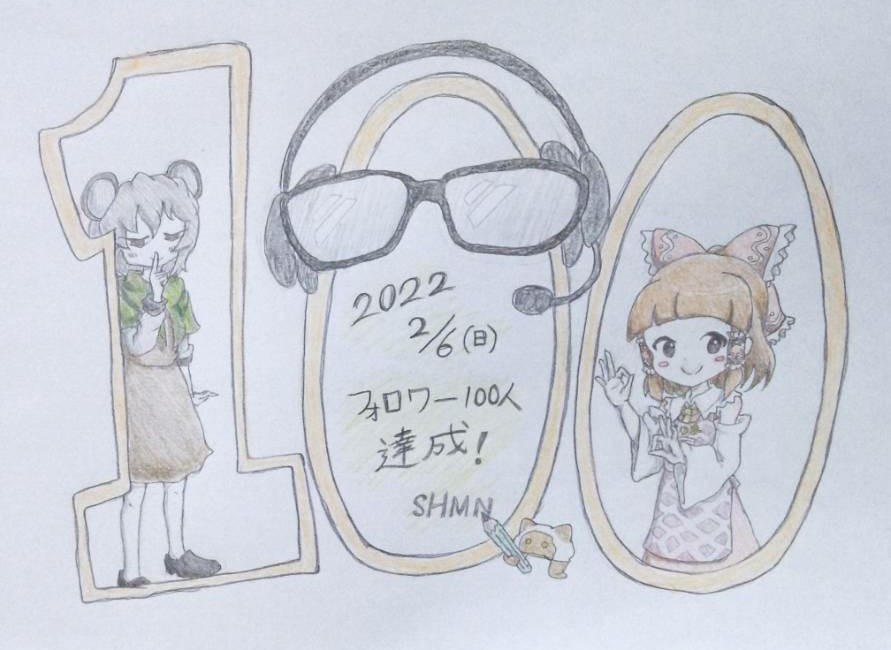 100
2022
2/6(日)
フォロワー100人
達成!
SHMN